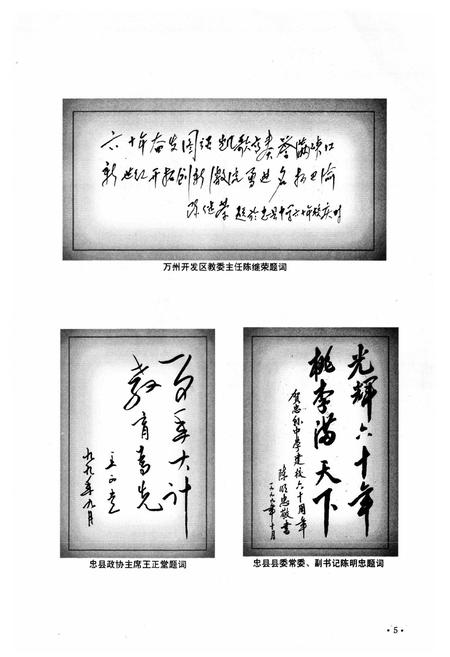 六十年奋发图强凯歌高奏誉满峡口
新世纪开拓创新激流勇进名扬巴渝
陈继荣 题于忠县中学六十年校庆时
万州开发区教委主任陈继荣题词
百年大计
教育为先
王正堂
九九年九月
忠县政协主席王正堂题词
光辉六十年
桃李满天下
贺忠县中学建校六十周年
陈明忠敬书
一九九九年十月
忠县县委常委、副书记陈明忠题词
·5·